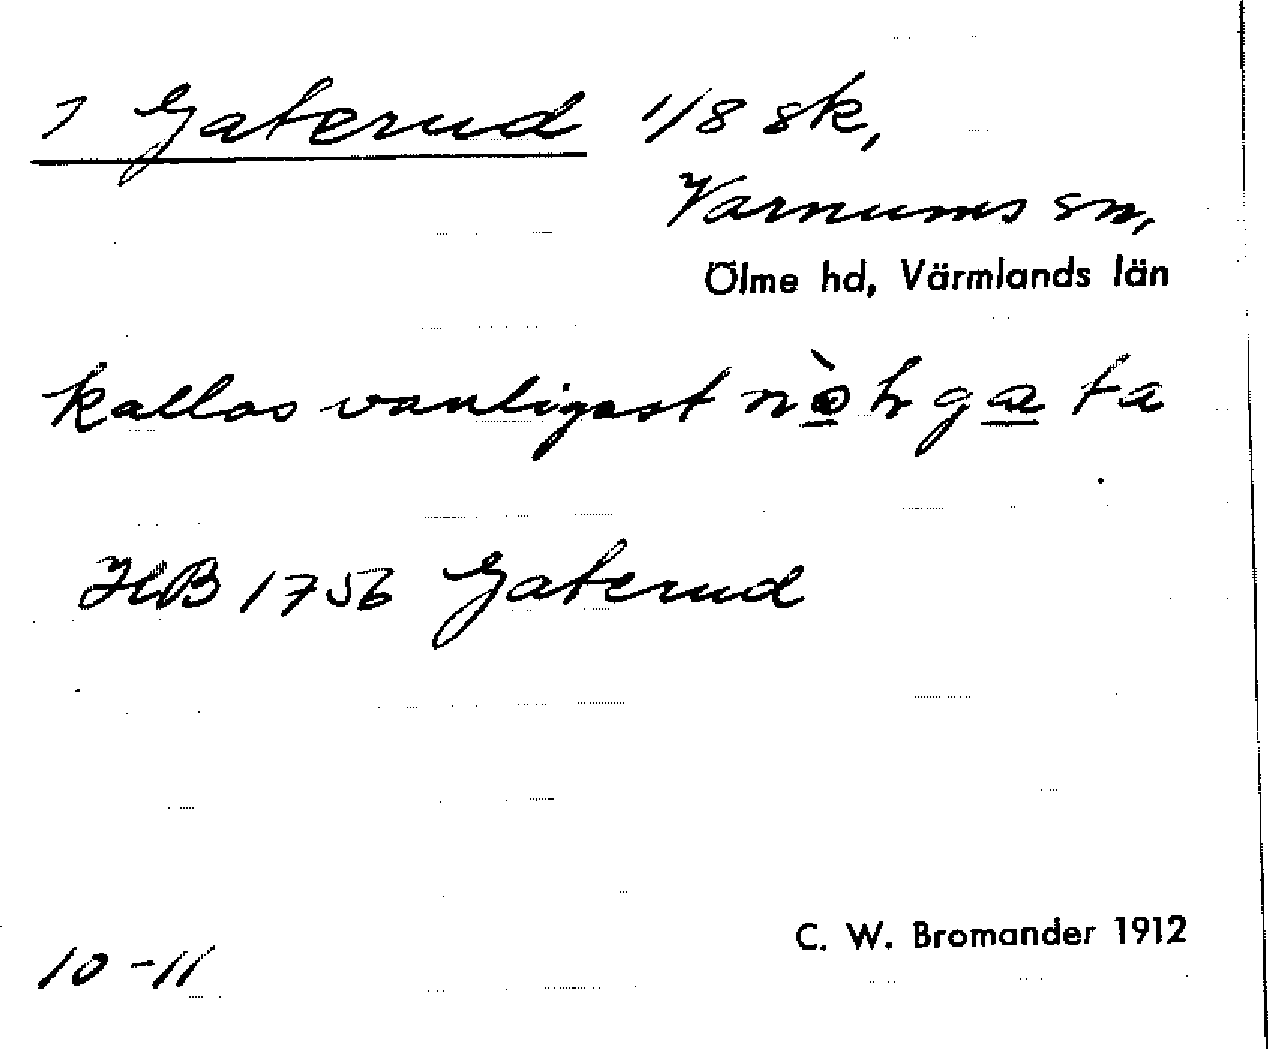 1 Gaterud 1/8 sk,
Varnums sn,
Ölme hd, Värmlands län
kallas vanligast
HB 1756 Gaterud
C. W. Bromander 1912
10-11